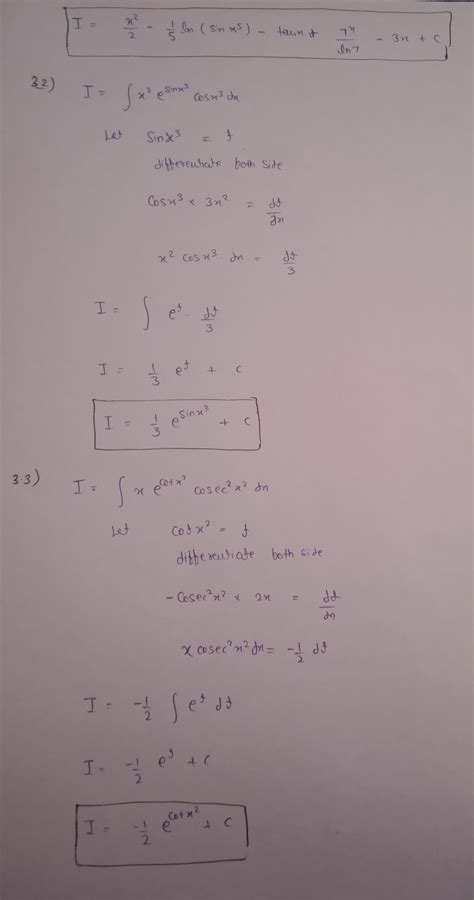 I = x²/2 - 1/5 ln (sin x⁵) - tanx 7ˣ/ln7 - 3x + c
32) I = ∫ x² e^sinx³ cosx³ dx
Let Sinx³ = t
differentiate both side
Cosx³ × 3x² = dt/dx
x² cosx³ dx = dt/3
I = ∫ e^t · dt/3
I = 1/3 e^t + c
I = 1/3 e^sinx³ + c
33) I = ∫ x e^cotx² cosec²x² dx
Let cotx² = t
differentiate both side
-Cosec²x² × 2x = dt/dx
x cosec²x² dx = -1/2 dt
I = -1/2 ∫ e^t dt
I = -1/2 e^t + c
I = -1/2 e^cotx² + c